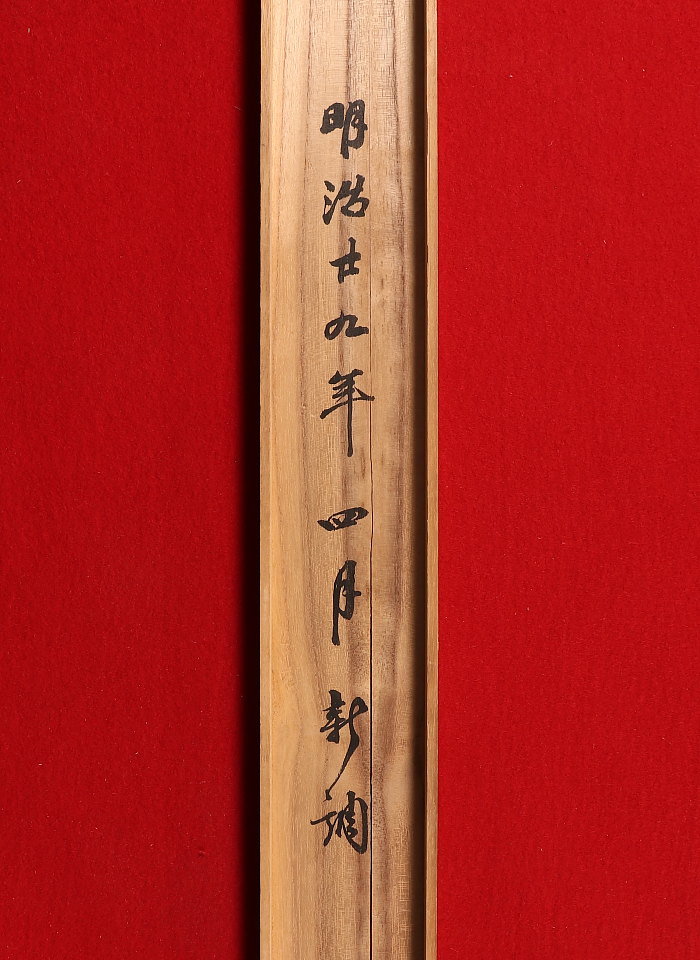 明治廿九年四月新調